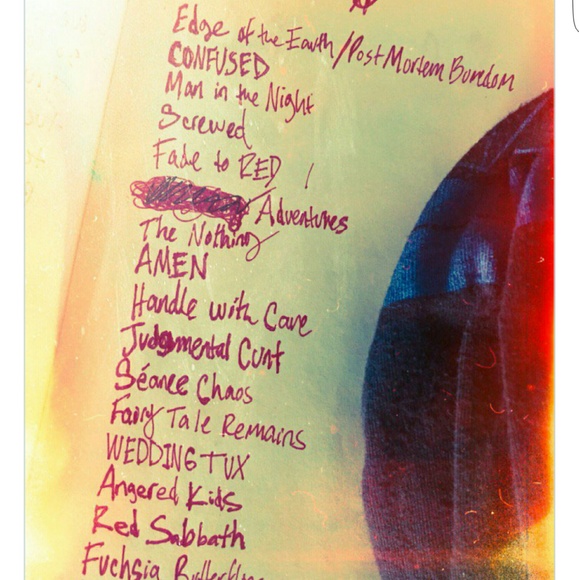 Edge of the Earth/Post Mortem Boredom
CONFUSED
Man in the Night
Screwed
Fade to RED !
Adventures
The Nothing
AMEN
Handle with Care
Judgmental Cunt
Séance Chaos
Fairy Tale Remains
WEDDING TUX
Angered Kids
Red Sabbath
Fuchsia Butterflies